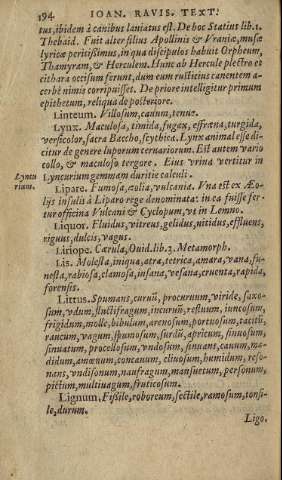 194 IOAN. RAVIS. TEXT.
tus, ibidem à canibus laniatus est. De hoc Statius lib. 1.
Thebaid. Fuit alter filius Apollinis & Vraniæ, musæ
lyricæ peritissimus, in qua discipulos habuit Orpheum,
Thamyram, & Herculem. Hunc ab Hercule plectro et
cithara occisum ferunt, dum eum rusticius canentem a-
cerbè nimis corripuisset. De priore intelligitur primum
epithetum, reliqua de posteriore.
Linteum. Villosum, cauum, tenue.
Lynx. Maculosa, timida, fugax, effræna, turgida,
versicolor, sacra Baccho, scythica. Lynx animal esse di-
citur de genere luporum ceruariorum. Est autem vario
collo, & maculoso tergore. Eius vrina vertitur in
Lyncurium gemmam duritie calculi.
Lyncu
rium.
Lipare. Fumosa, æolia, vulcania. Vna est ex Æo-
lijs insulis à Liparo rege denominata: in ea fuisse fer-
tur officina Vulcani & Cyclopum, vt in Lemno.
Liquor. Fluidus, vitreus, gelidus, nitidus, effluens,
riguus, dulcis, vagus.
Liriope. Cærula, Ouid. lib. 3. Metamorph.
Lis. Molesta, iniqua, atra, tetrica, amara, vana, fu-
nesta, rabiosa, clamosa, insana, vesana, cruenta, rapida,
forensis.
Littus. Spumans, curuũ, procuruum, viride, saxo-
sum, vdum, fluctifragum, incuruũ, restuum, iuncosum,
frigidum, molle, bibulum, arenosum, portuosum, tacitũ,
raucum, vagum, spumosum, surdũ, apricum, sinuosum,
sinuatum, procellosum, vndosum, sinuans, cauum, ma-
didum, amœnum, concauum, cliuosum, humidum, reso-
nans, vndisonum, naufragum, mansuetum, personum,
pictum, multiuagum, fruticosum.
Lignum, Fissile, roboreum, sectile, ramosum, tonsi-
le, durum.
Ligo.